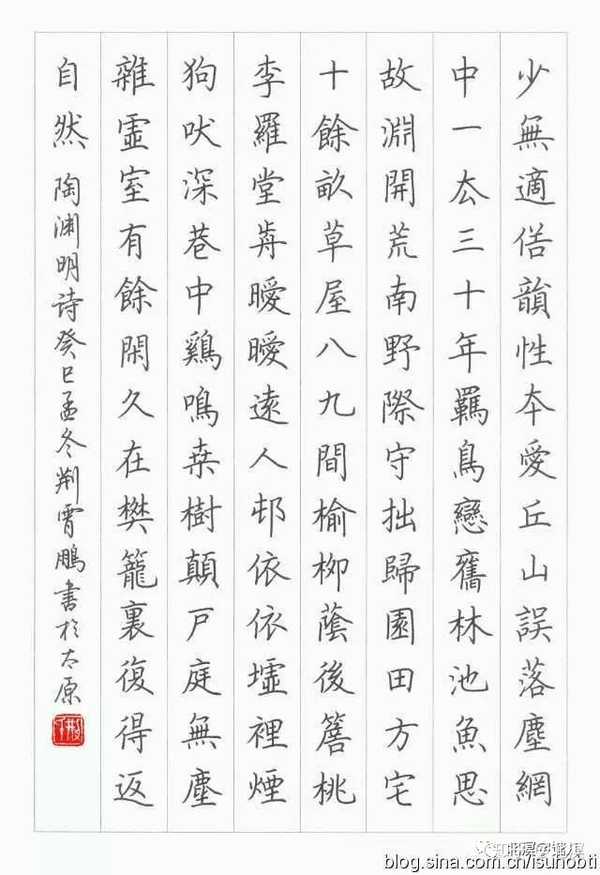 少無適俗韻性夲愛丘山誤落塵網
中一厺三十年羈鳥戀舊林池魚思
故淵開荒南野際守拙歸園田方宅
十餘畝草屋八九間榆柳蔭後簷桃
李羅堂歬曖曖遠人邨依依墟裡煙
狗吠深巷中鷄鳴桒樹顛戶庭無塵
雜虛室有餘閑久在樊籠裏復得返
自然 陶渊明詩癸巳孟冬荆霄鵬書於太原